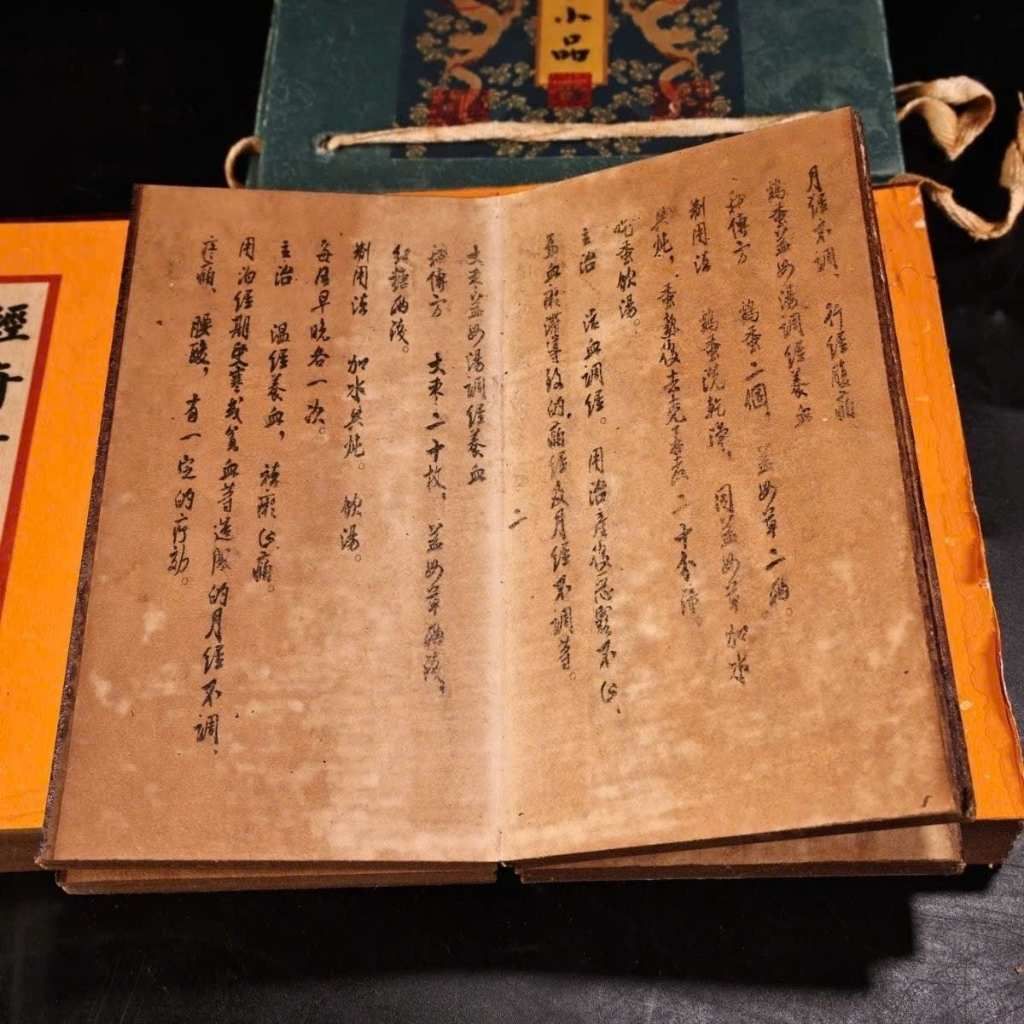 小品
經
月經不調、行經腹痛
鷄蛋益母湯調經養血
秘傳方 鷄蛋二個，益母草二兩。
制用法 鷄蛋洗乾淨，同益母草加水
共炖，蛋熟後去壳再煮二十分鐘。
吃蛋飲湯。
主治 活血調經。用治產後惡露不止、
爲血瘀滯導致的痛經及月經不調等。
二
大棗益母湯調經養血
秘傳方 大棗二十枚，益母草兩錢，
紅糖兩錢。
制用法 加水共炖。飲湯。
每日早晚各一次。
主治 溫經養血，祛瘀止痛。
用治經期受寒或貧血等造成的月經不調、
疼痛、腰酸，有一定的疗効。